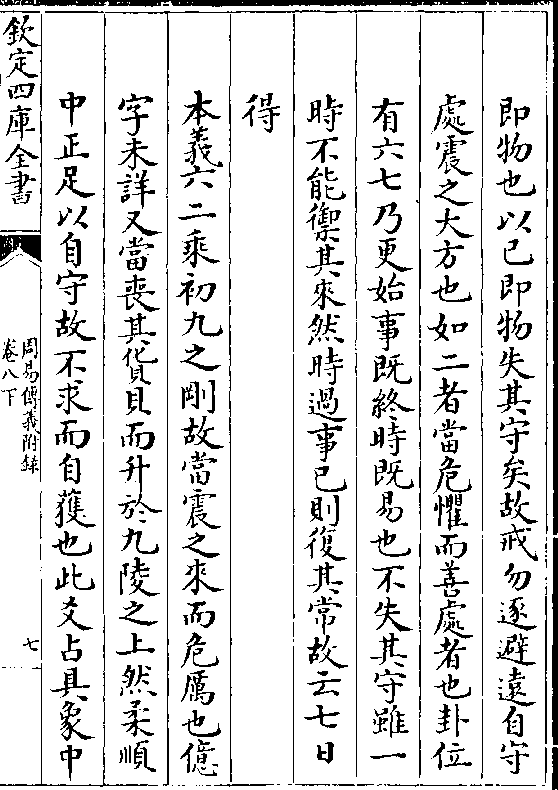 即物也以己即物失其守矣故戒勿逐避遠自守
處震之大方也如二者當危懼而善處者也卦位
有六七乃更始事既終時既易也不失其守雖一
時不能禦其來然時過事已則復其常故云七日
得
本義六二乘初九之剛故當震之來而危厲也億
字未詳又當喪其貨貝而升於九陵之上然柔順
中正足以自守故不求而自獲也此爻占具象中
欽定四庫全書
周易傳義附錄
卷八下
七